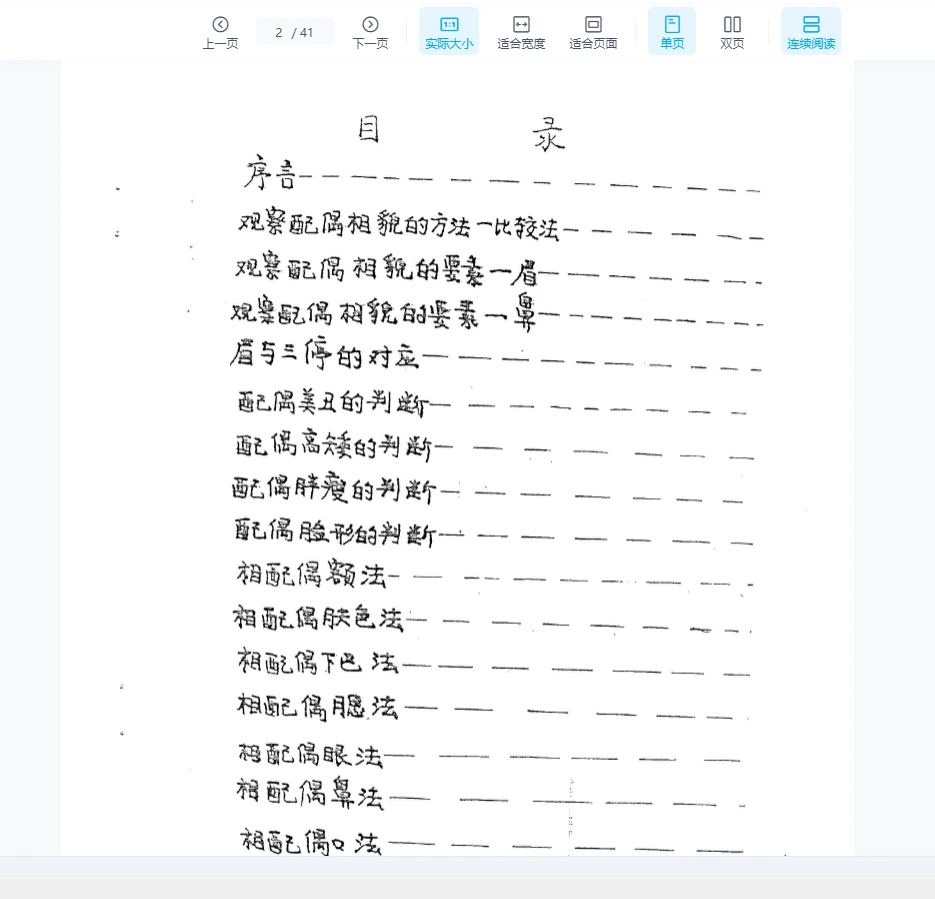 上一页 2 / 41 下一页 实际大小 适合宽度 适合页面 单页 双页 连续阅读
目 录
序言
观察配偶相貌的方法一比较法
观察配偶相貌的要素一眉
观察配偶相貌的要素一鼻
眉与三停的对应
配偶美丑的判断
配偶高矮的判断
配偶胖瘦的判断
配偶脸形的判断
相配偶额法
相配偶肤色法
相配偶下巴法
相配偶腮法
相配偶眼法
相配偶鼻法
相配偶口法